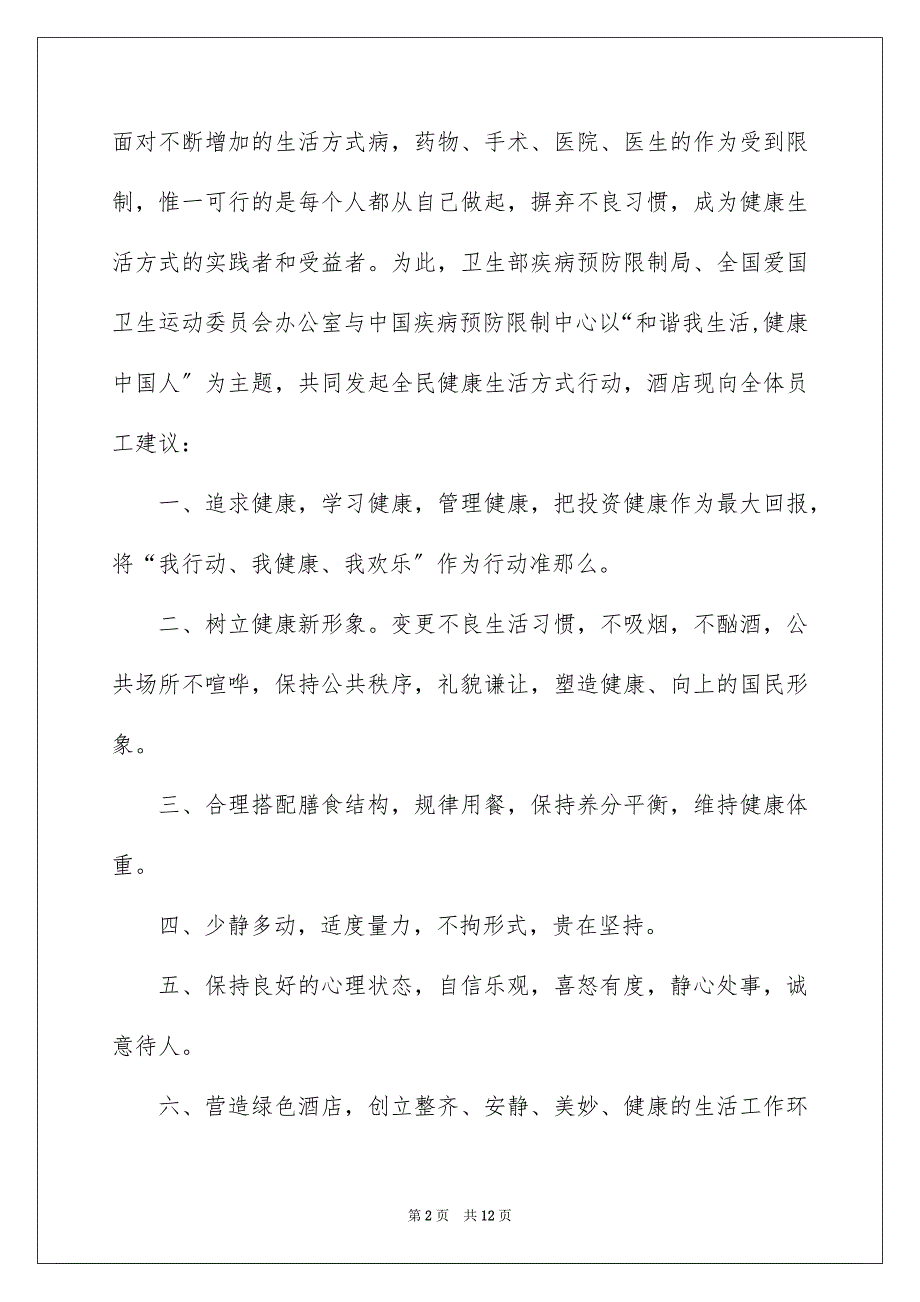 面对不断增加的生活方式病，药物、手术、医院、医生的作为受到限
制，惟一可行的是每个人都从自己做起，摒弃不良习惯，成为健康生
活方式的实践者和受益者。为此，卫生部疾病预防限制局、全国爱国
卫生运动委员会办公室与中国疾病预防限制中心以“和谐我生活,健康
中国人〞为主题，共同发起全民健康生活方式行动，酒店现向全体员
工建议：
一、追求健康，学习健康，管理健康，把投资健康作为最大回报，
将“我行动、我健康、我欢乐〞作为行动准那么。
二、树立健康新形象。变更不良生活习惯，不吸烟，不酗酒，公
共场所不喧哗，保持公共秩序，礼貌谦让，塑造健康、向上的国民形
象。
三、合理搭配膳食结构，规律用餐，保持养分平衡，维持健康体
重。
四、少静多动，适度量力，不拘形式，贵在坚持。
五、保持良好的心理状态，自信乐观，喜怒有度，静心处事，诚
意待人。
六、营造绿色酒店，创立整齐、安静、美妙、健康的生活工作环
第 2 页 共 12 页